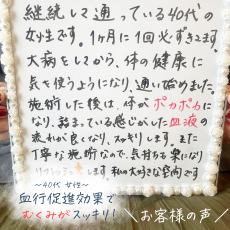 継続して通っている40代の
女性です。1ヶ月に1回必ずきてます。
大病をしてから、体の健康に
気を使うようになり、通い始めました。
施術した後は、体がポカポカに
なり、詰まっている感じがした血液の
流れが良くなり、スッキリします。また
丁寧な施術なので、気持ちも楽になり
リフレッシュします。私の大好きな空間です
～40代 女性～
血行促進効果で
むくみがスッキリ!
＼お客様の声／